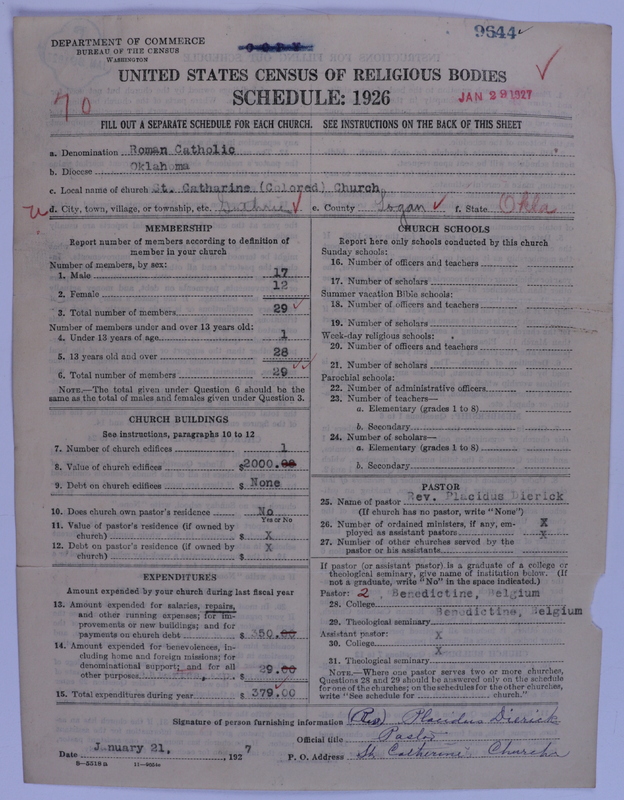 9644
DEPARTMENT OF COMMERCE
BUREAU OF THE CENSUS
WASHINGTON
COPY
UNITED STATES CENSUS OF RELIGIOUS BODIES
SCHEDULE: 1926
JAN 29 1927
70
FILL OUT A SEPARATE SCHEDULE FOR EACH CHURCH. SEE INSTRUCTIONS ON THE BACK OF THIS SHEET
a. Denomination Roman Catholic
b. Diocese Oklahoma
c. Local name of church St. Catharine (Colored) Church
d. City, town, village, or township, etc. Guthrie e. County Logan f. State Okla
MEMBERSHIP
Report number of members according to definition of
member in your church
Number of members, by sex:
1. Male 17
2. Female 12
3. Total number of members 29
Number of members under and over 13 years old:
4. Under 13 years of age 1
5. 13 years old and over 28
6. Total number of members 29
NOTE.—The total given under Question 6 should be the
same as the total of males and females given under Question 3.
CHURCH BUILDINGS
See instructions, paragraphs 10 to 12
7. Number of church edifices 1
8. Value of church edifices $2000.00
9. Debt on church edifices $ None
10. Does church own pastor's residence No
Yes or No
11. Value of pastor's residence (if owned by
church) $ X
12. Debt on pastor's residence (if owned by
church) $ X
EXPENDITURES
Amount expended by your church during last fiscal year
13. Amount expended for salaries, repairs,
and other running expenses; for im-
provements or new buildings; and for
payments on church debt $ 350.00
14. Amount expended for benevolences, in-
cluding home and foreign missions; for
denominational support; and for all
other purposes $ 29.00
15. Total expenditures during year $ 379.00
CHURCH SCHOOLS
Report here only schools conducted by this church
Sunday schools:
16. Number of officers and teachers
17. Number of scholars
Summer vacation Bible schools:
18. Number of officers and teachers
19. Number of scholars
Week-day religious schools:
20. Number of officers and teachers
21. Number of scholars
Parochial schools:
22. Number of administrative officers
23. Number of teachers—
a. Elementary (grades 1 to 8)
b. Secondary
24. Number of scholars—
a. Elementary (grades 1 to 8)
b. Secondary
PASTOR
25. Name of pastor Rev. Placidus Dierick
(If church has no pastor, write "None")
26. Number of ordained ministers, if any, em-
ployed as assistant pastors X
27. Number of other churches served by the
pastor or his assistants X
If pastor (or assistant pastor) is a graduate of a college or
theological seminary, give name of institution below. (If
not a graduate, write "No" in the space indicated.)
Pastor: 2 Benedictine, Belgium
28. College
Benedictine, Belgium
29. Theological seminary
Assistant pastor: X
30. College
X
31. Theological seminary
NOTE.—Where one pastor serves two or more churches,
Questions 28 and 29 should be answered only on the schedule
for one of the churches; on the schedules for the other churches,
write "See schedule for church."
Signature of person furnishing information (Rev) Placidus Dierick
Official title Pastor
Date January 21, 1927 P. O. Address St Catherine Church
8-5518 a 11-9054a